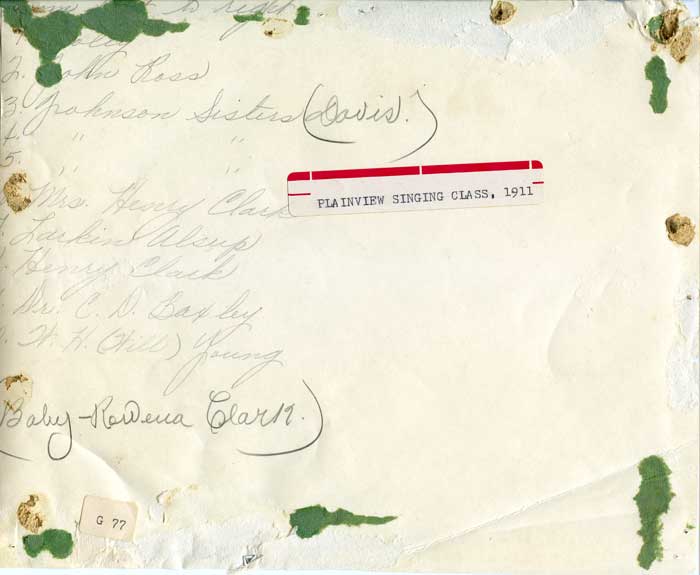 to right
1.
2. John Ross
3. Johnson Sisters (Davis.)
4. " "
5. " "
Mrs. Henry Clark
PLAINVIEW SINGING CLASS, 1911
Larkin Alsup
Henry Clark
Dr. C. D. Baxley
W. H. (Will) Young
Baby - Rowena Clark.)
G 77